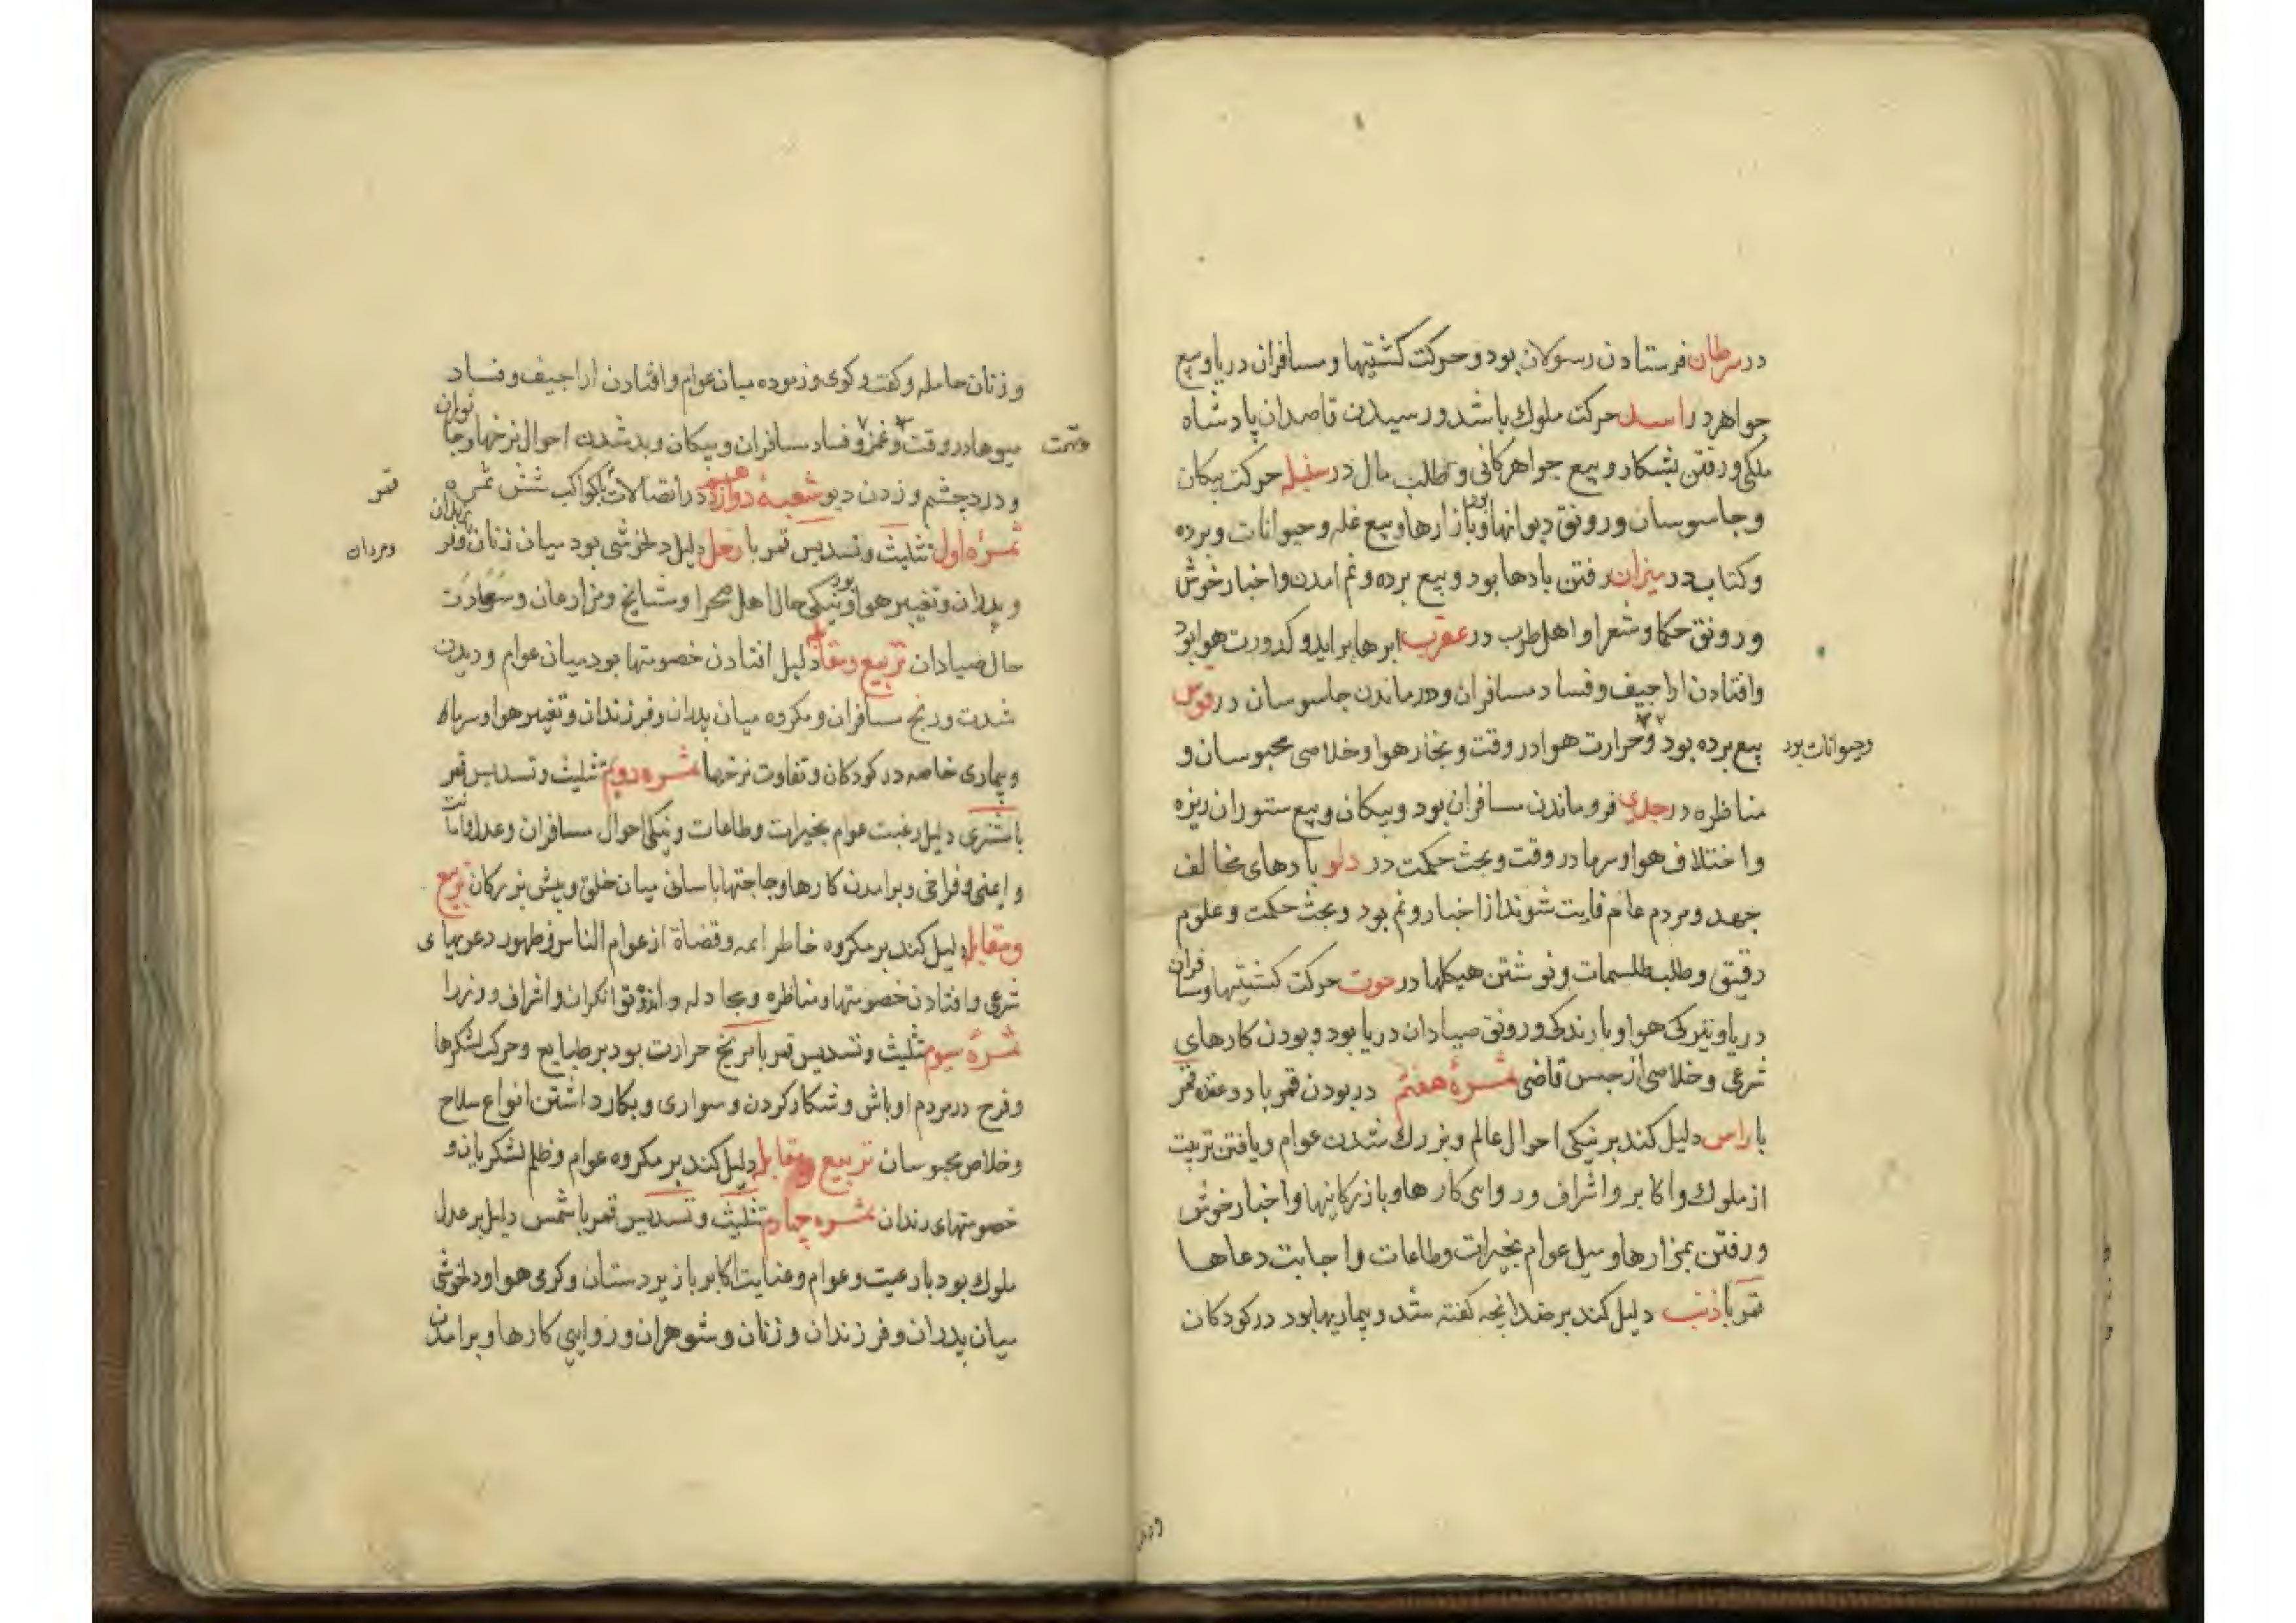 در سرطان فرستادن رسولان بود و حرکت کشتیها و مسافران دریا و بیع
جواهر در اسد حرکت ملوک باشد و رسیدن قاصدان پادشاه
ملکی و رفتن بشکار و بیع جواهر کانی و طلب مال در سنبله حرکت پیکان
و جاسوسان و رونق دیوانها بود و بازارها و بیع غله و حیوانات و برده
و کتاب در میزان رفتن بادها بود و بیع برده و نم امدن و اخبار خوش
و رونق حکما و شعرا و اهل طرب در عقرب ابرها براید و کدورت هوا بود
وافتادن اراجیف و فساد مسافران و درماندن جاسوسان در قوس
بیع برده بود و حرارت هوا در وقت و بخار هوا و خلاصی محبوسان و
وحیوانات بود
مناظره در جدی فرو ماندن مسافران بود و پیکان و بیع ستوران ریزه
و اختلاف هوا و سرما در وقت و بحث حکمت در دلو بادهای مخالف
جهد و مردم عام فایت شوند از اخبار و نم بود و بحث حکمت و علوم
دقیق و طلب طلسمات و نوشتن هیکلها در حوت حرکت کشتیها و مسافران
دریا و تیرکی هوا و بارندکی و رونق صیادان دریا بود و بودن کارهای
شرعی و خلاصی از حبس قاضی ثمرهٔ هفتم در بودن قمر با دو عقده قمر
با راس دلیل کند بر نیکی احوال عالم و بزرک شدن عوام و یافتن تربیت
از ملوک و اکابر و اشراف و روایی کارها و بازرکانیها و اخبار خوش
و رفتن بمزارها و میل عوام بخیرات و طاعات و اجابت دعاها
قمر با ذنب دلیل کند بر ضد انچه کفته شد و بیماریها بود در کودکان
و زنان
و زنان حامله و کفت و کوی و زموده میان عوام و افتادن اراجیف و فساد
میوها در وقت و غمز و فساد مسافران و پیکان و بد شدن احوال نرخها و جانوران
وتهمت
و درد چشم و زدن دیو شعبهٔ دوازدهم در اتصالات با کواکب شش ثمره
قمر
ثمرهٔ اول تثلیث و تسدیس قمر با زحل دلیل دلخوشی بود میان زنان و فرزندان
ومردان
و پدران و تغییر هوا بود و نیکی حال اهل صحرا و مشایخ و مزارعان و سعادت
حال صیادان تربیع و مقابله دلیل افتادن خصومتها بود میان عوام و دیدن
شدت و رنج مسافران و مکروه میان پدران و فرزندان و تغییر هوا و سرماه
و بیماری خاصه در کودکان و تفاوت نرخها ثمره دویم تثلیث و تسدیس قمر
با مشتری دلیل رغبت عوام بخیرات و طاعات و نیکی احوال مسافران و عدل و امانت
و ایمنی و فراخی و برامدن کارها و حاجتها باسانی میان خلق و پیش بزرکان تربیع
و مقابله دلیل کند بر مکروه خاطر ایمه و قضاة از عوام الناس و ظهور دعویهای
شرعی و افتادن خصومتها و مناظره و مجادله و اندوه توانکران و اشراف و وزرا
ثمرهٔ سیوم تثلیث و تسدیس قمر با مریخ حرارت بود بر طبایع و حرکت لشکرها
و فرح در مردم اوباش و شکار کردن و سواری و بکار داشتن انواع سلاح
و خلاص محبوسان تربیع و مقابله دلیل کند بر مکروه عوام و ظلم لشکریان و
خصومتهای رندان ثمره چهارم تثلیث و تسدیس قمر با شمس دلیل بر عدل
ملوک بود با رعیت و عوام و عنایت اکابر با زیردستان و کرمی هوا و دلخوشی
میان پدران و فرزندان و زنان و شوهران و روایی کارها و برامدن